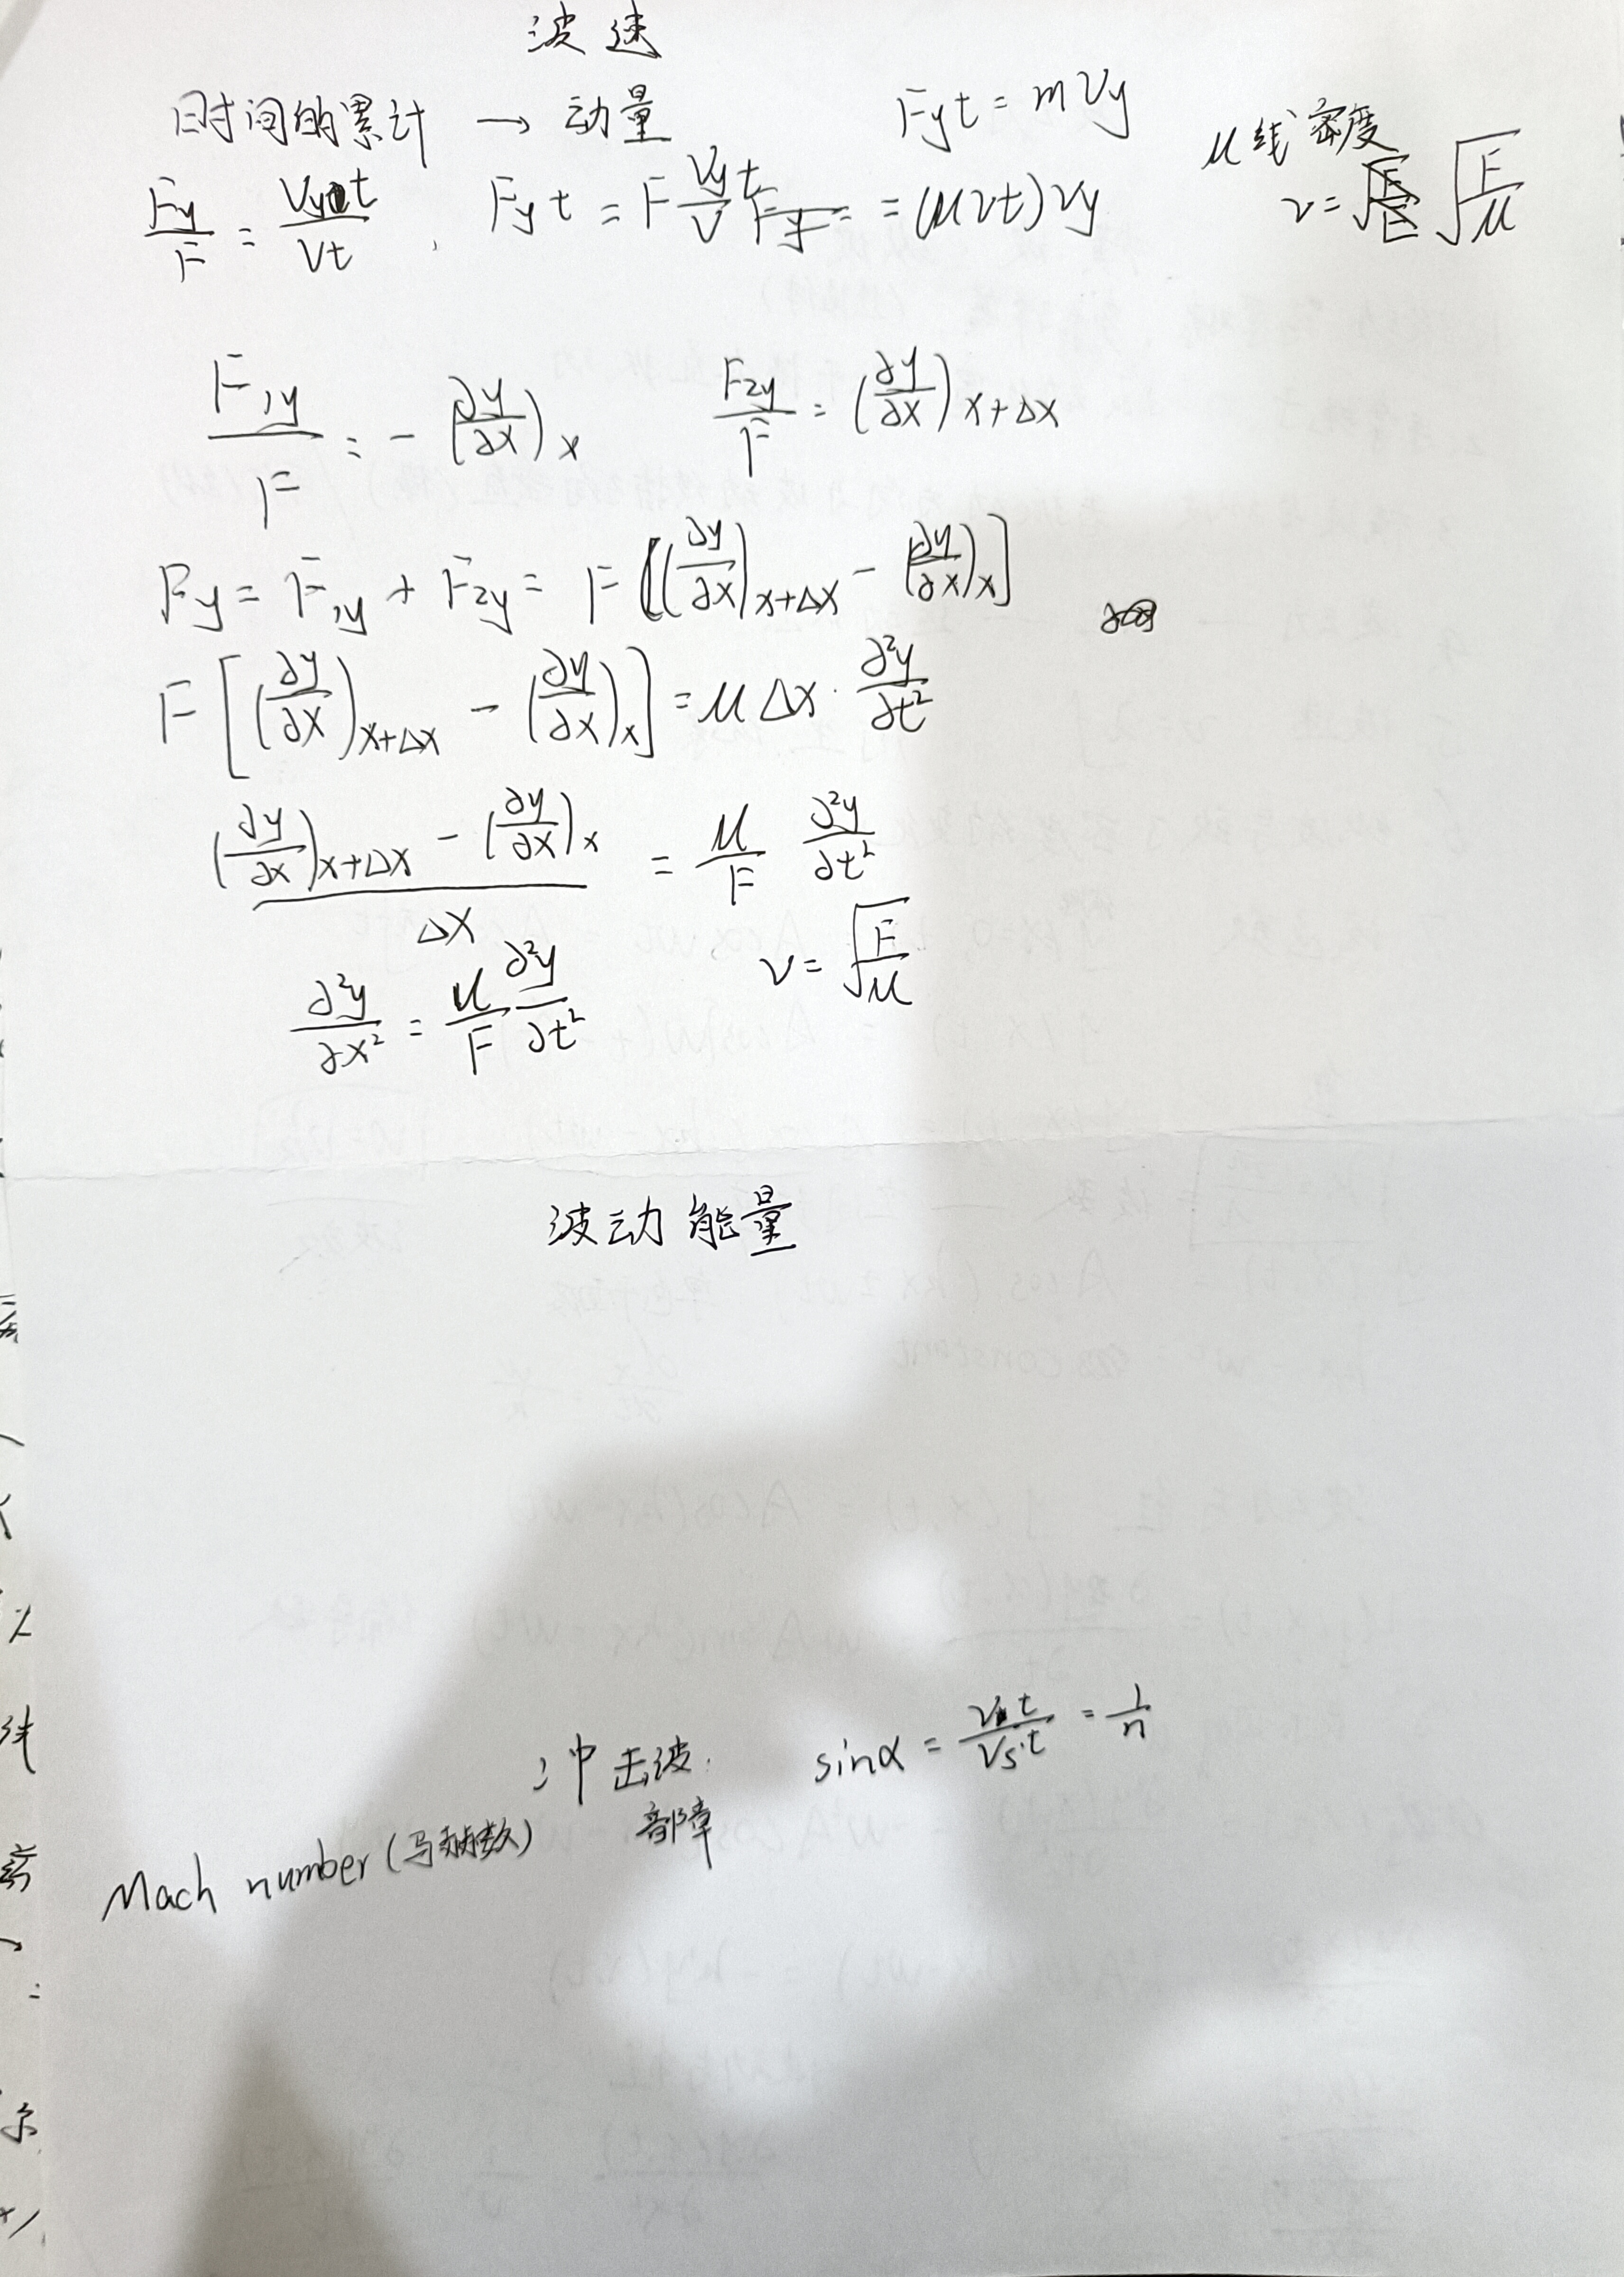 波速
时间的累计 → 动量 Fyt = mvy
μ线密度
Fy/F = vyt/vt , Fyt = F vy/v t = (μvt)vy v = √(F/μ)
F1y/F = -(∂y/∂x)x F2y/F = (∂y/∂x)x+Δx
Fy = F1y + F2y = F[(∂y/∂x)x+Δx - (∂y/∂x)x]
F[(∂y/∂x)x+Δx - (∂y/∂x)x] = μΔx · ∂²y/∂t²
((∂y/∂x)x+Δx - (∂y/∂x)x)/Δx = μ/F ∂²y/∂t²
v = √(F/μ)
∂²y/∂x² = μ/F ∂²y/∂t²
波动能量
冲击波. sinα = vt/vs·t = 1/n
Mach number (马赫数)